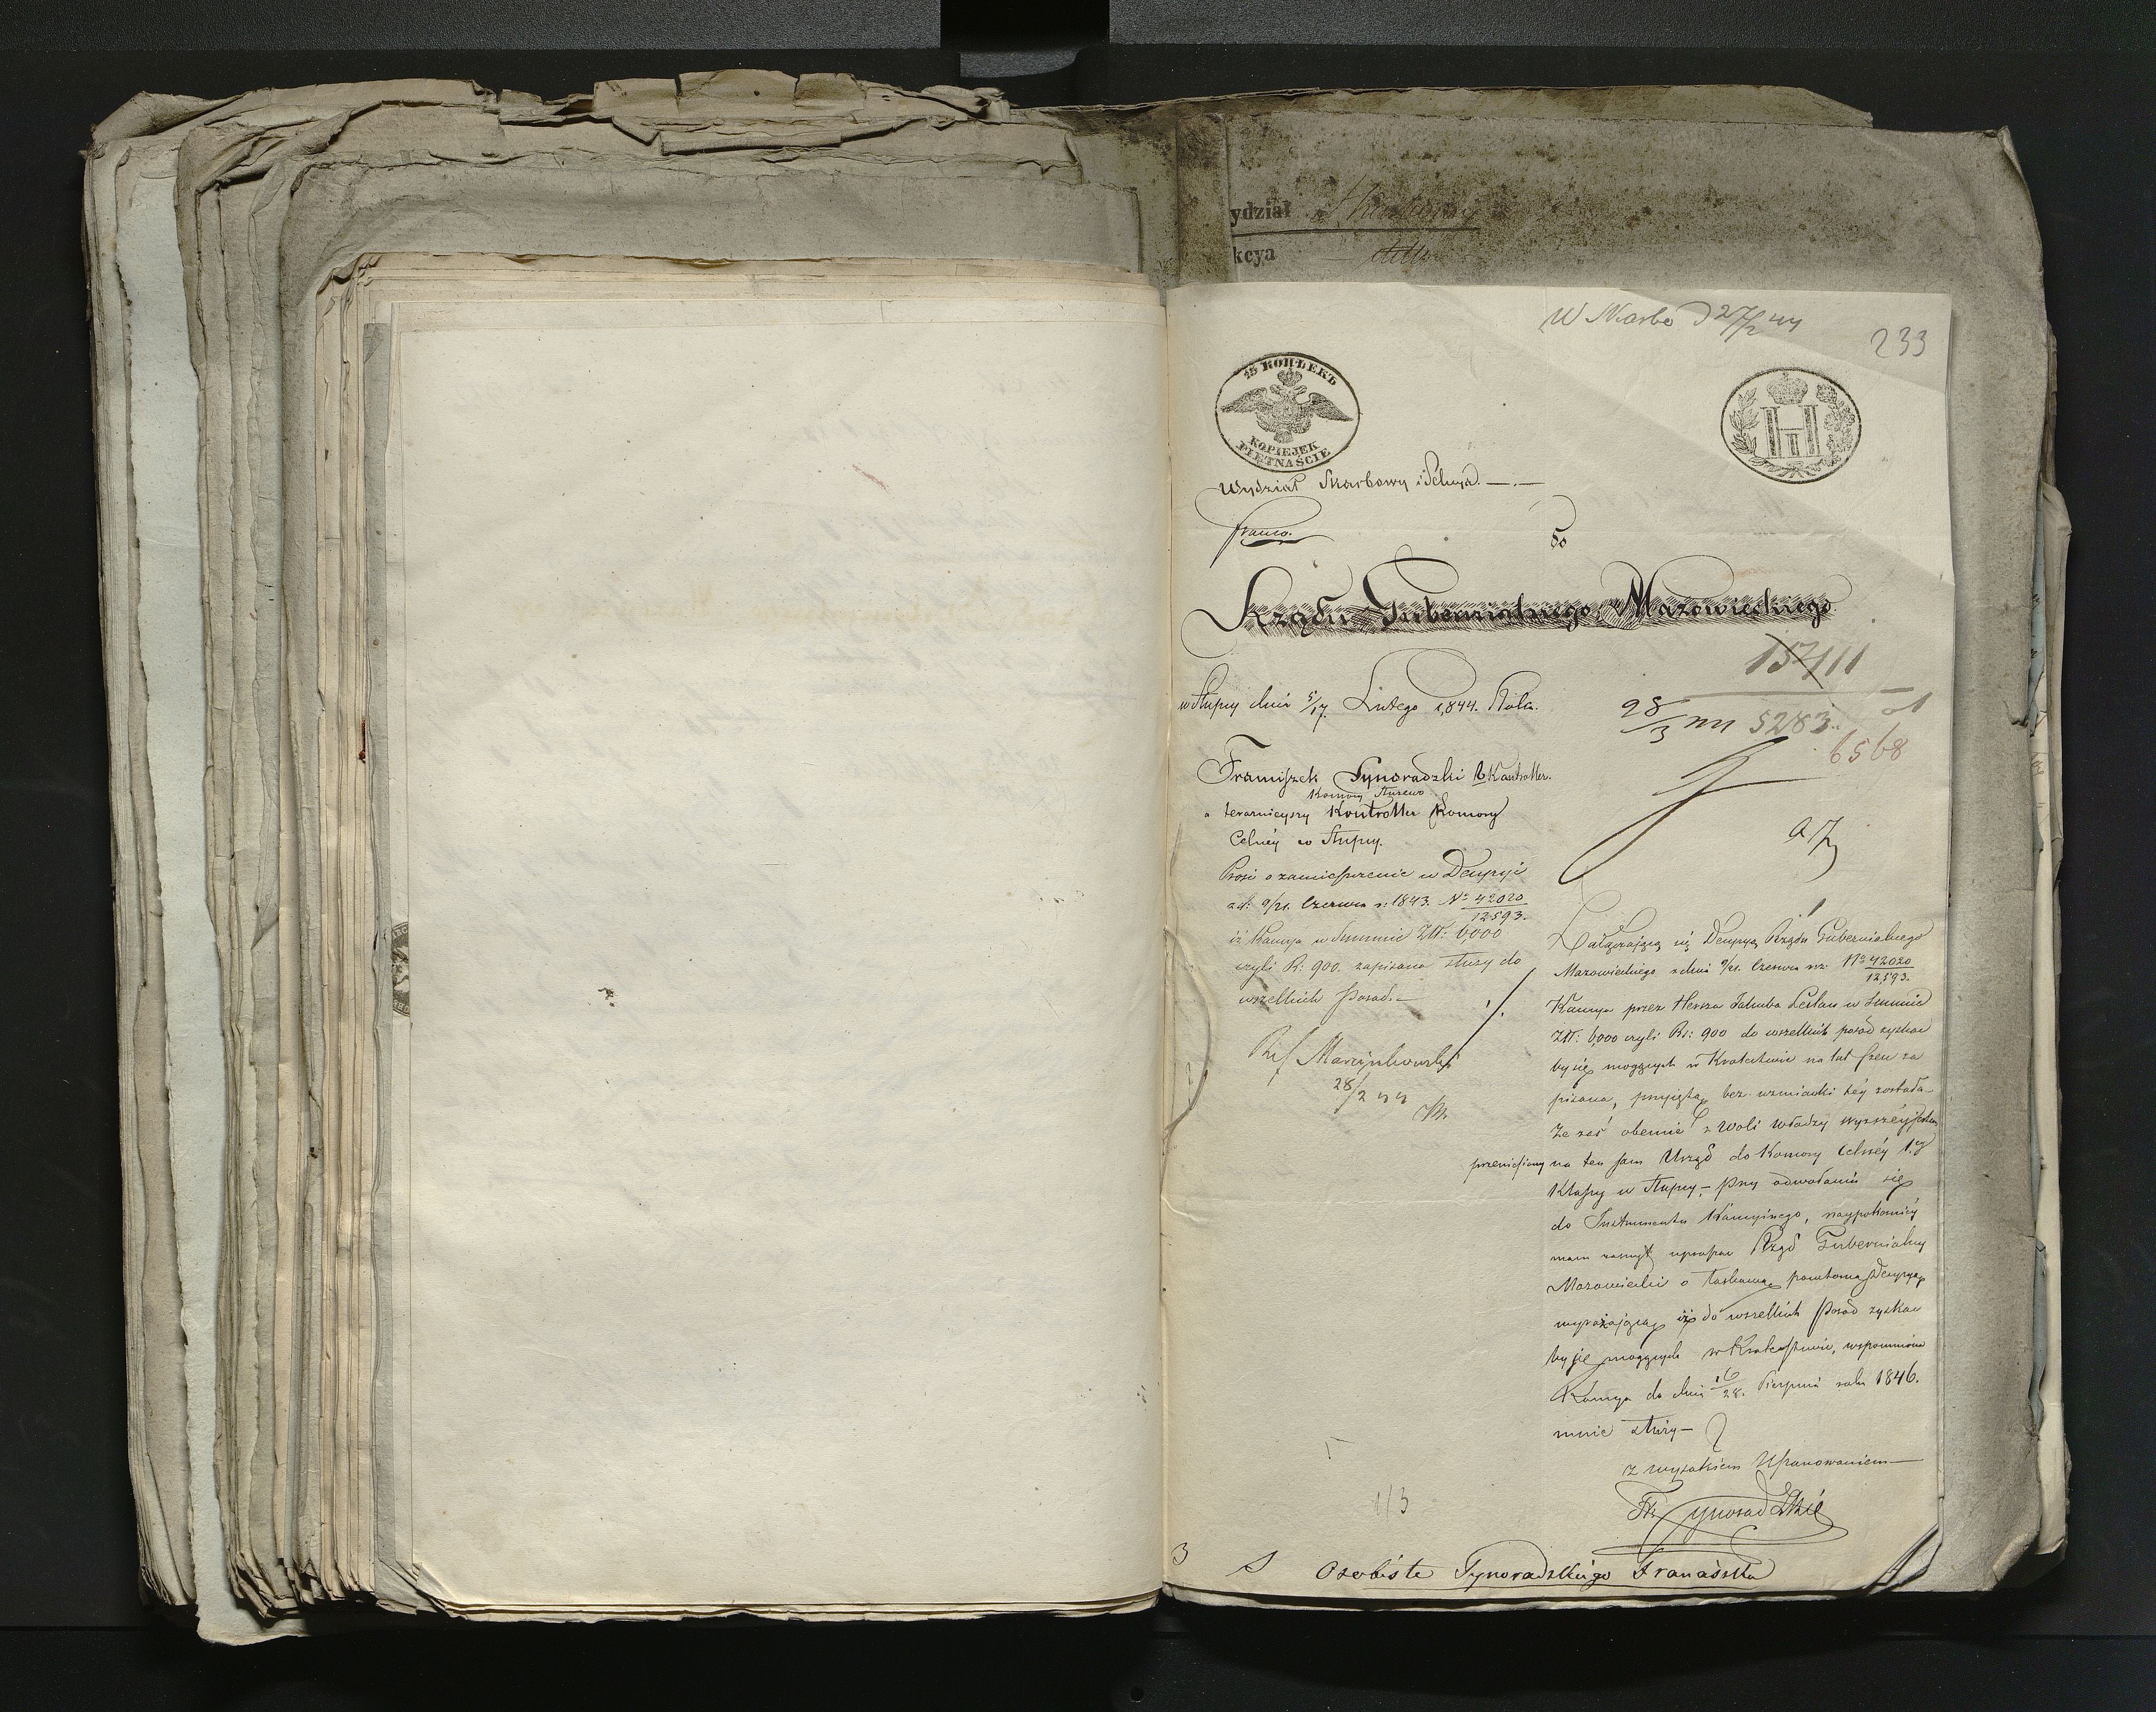 ydział Skarbowy
kcya
W Skarbe D 27/2 44
233
15 КОПѢЕКЪ
KOPIEJEK
PIĘTNAŚCIE
Wydział Skarbowy i Sekcya
franco.
Do
Rządu Gubernialnego Mazowieckiego.
15411
w Słupcy dnia 5/17. Lutego 1,844. Roku.
28/3 5283
6568
Franciszek Tynoradzki Kontroller
Komory
a terazniejszy Kontroller Komory
Celnéy w Słupcy.
Prosi o zamieszczenie w Decyzyi
z d: 9/21. Czerwca r: 1843. No 42020/12593.
iż Kaucya w Summie Złl: 6,000
czyli Rs: 900. zapisana służy do
wszelkich Posad.
Ref Marcinkowski
28/2 44
Załączającą się Decyzyą Rządu Gubernialnego
Mazowieckiego z dnia 9/21. Czerwca No 42020/12,593.
Kaucya przez Hersza Jakuba w Summie
Złl: 6,000 czyli Rs: 900 do wszelkich posad zyskać
by się mogących w Królestwie na lat za
pisana, przyjętą bez wzmianki téy została
Że zaś obecnie z Woli Władzy wyższéy jestem
przeniesiony na ten sam Urząd do Komory Celnéy 1.y
Klassy w Słupcy, przy odwołaniu się
do Instrumentu Kaucyinego, naypokorniéy
mam zaszczyt upraszać Rząd Gubernialny
Mazowiecki o łaskawą Decyzyą,
wyrażającą iż do wszelkich Posad zyskać
by się mogących w Królestwie, wspomniona
Kaucya do dnia 16/28. Sierpnia roku 1846.
mnie służy
z wysokiem Uszanowaniem
Fr Tynoradzki
1/3
3
Osobiste Tynoradzkiego Franciszka